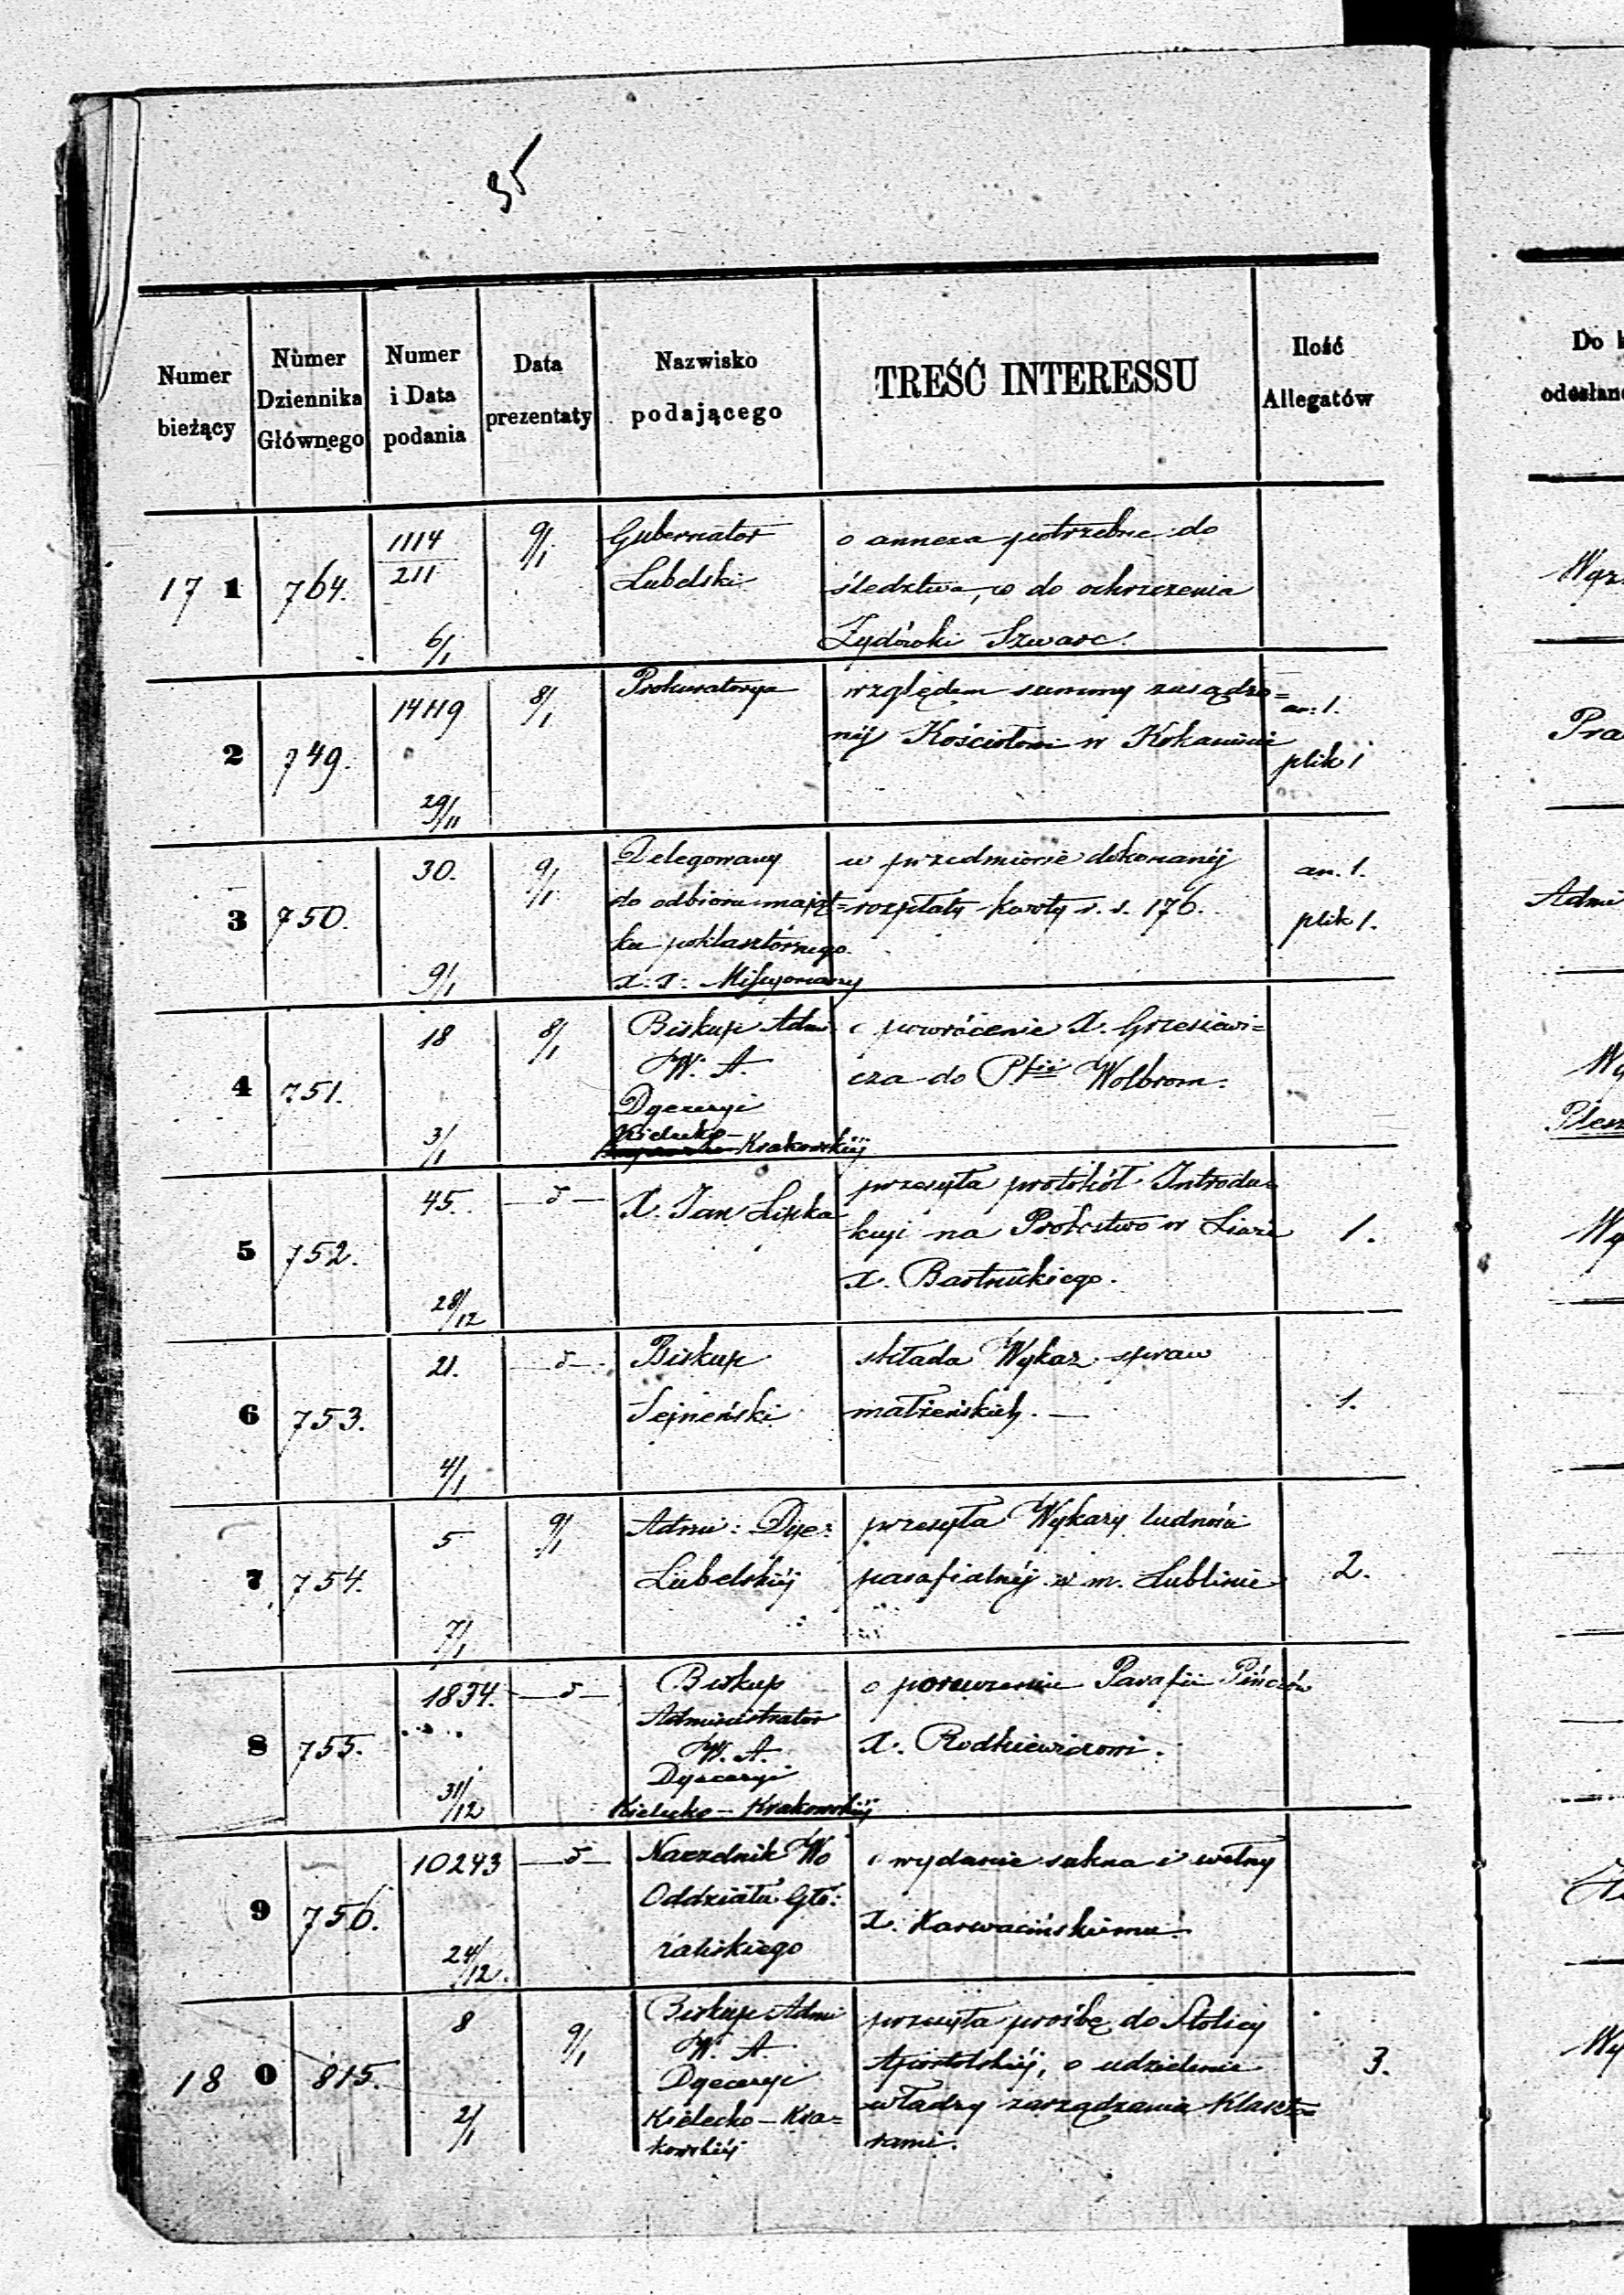 95
Numer bieżący
Numer Dziennika Głównego
Numer i Data podania
Data prezentaty
Nazwisko podającego
TREŚĆ INTERESSU
Ilość Allegatów
Do
odesłan
17 1
764.
1114
211
6/1
9/1
Gubernator
Lubelski
o annexa potrzebne do
śledztwa, co do ochrzczenia
Żydówki Szwarc.
2
749.
14119
29/11
8/1
Prokuratorya
względem summy zasądzo=
néj Kościołowi w
an: 1.
plik 1
Pra
3
750.
30.
9/1
9/1
Delegowany
do odbioru mająt=
ku poklasztórnego
x. x. Missyonarzy
w przedmiocie dokonanéj
rozpłaty kwoty r. s. 176.
an. 1.
plik 1.
Admi
4
751.
18
3/1
8/1
Biskup Admi
W. A.
Dyecezyi
Kielecko-
Krakowskiéj
o powrócenie X. Grzesiewi=
cza do Pfii Wolbrom.
5
752.
45.
28/12
X. Jan Lipka
przesyła protokół Introdu=
kcyi na Probostwo w
x.
1.
6
753.
21.
4/1
Biskup
Sejneński
składa Wykaz spraw
małżeńskich. —
1.
7
754.
5
7/1
9/1
Admi: Dye:
Lubelskiéj
przesyła Wykazy ludności
parafialnéj w m. Lublinie
2.
8
755.
1834.
31/12
Biskup
Administrator
W. A.
Dyecezyi
Kielecko – Krakowskiéj
o poruczenie Parafii Pińczów
X. Rodkiewiczowi.
9
756.
10243
24/12.
Naczelnik Wo
Oddziału
o wydanie sukna i wełny
X.
18 0
815.
8
2/1
9/1
Biskup Admi
W. A.
Dyecezyi
Kielecko – Kra=
kowskiéj
przesyła prośbę do Stolicy
Apostolskiéj, o udzielenie
władzy zarządzania Klaszto=
rami.
3.